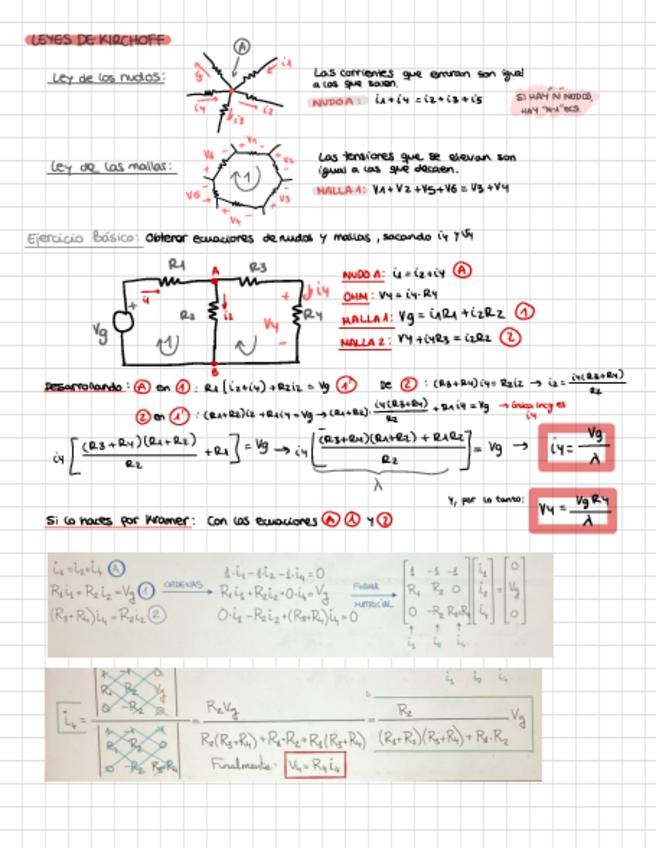 LEYES DE KIRCHOFF
Ley de los nudos:
A
i1
i4
i3
i2
Las corrientes que entran son igual
a las que salen.
NUDO A: i1+i4 = i2+i3+i5
SI HAY N NUDOS,
HAY "N-1" ECS
Ley de las mallas:
1
V6
V4
Las tensiones que se elevan son
igual a las que decaen.
MALLA 1: V1+V2+V5+V6 = V3+V4
Ejercicio Básico: Obtener ecuaciones de nudos y mallas, sacando i4 y V4
R1
A
R3
i4
R2
i2
V4
R4
Vg
+
-
1
2
B
NUDO A: i1=i2+i4 A
OHM: V4=i4·R4
MALLA 1: Vg = i1R1+i2R2 1
MALLA 2: V4+i4R3 = i2R2 2
Desarrollando: A en 1: R1(i2+i4)+R2i2 = Vg 1' De 2: (R3+R4)i4=R2i2 → i2= i4(R3+R4) / R2
2 en 1': (R1+R2)i2+R1i4=Vg → (R1+R2)· i4(R3+R4) / R2 + R1i4=Vg → única incg es i4
i4 [ (R3+R4)(R1+R2) / R2 + R1 ] = Vg → i4 [ (R3+R4)(R1+R2) + R1R2 / R2 ] = Vg → i4= Vg / λ
λ
Y, por lo tanto: V4 = Vg R4 / λ
Si lo haces por Kramer: Con las ecuaciones A 1 y 2
i1=i2+i4 A
R1i1+R2i2=Vg 1
(R3+R4)i4=R2i2 2
ORDENAS
1·i1-1·i2-1·i4=0
R1i1+R2i2+0·i4=Vg
0·i1-R2i2+(R3+R4)i4=0
FORMA
MATRICIAL
1 -1 -1
R1 R2 0
0 -R2 R3+R4
i1
i2
i4
=
0
Vg
0
i1 i2 i4
i1 i2 i4
i4 = = R2Vg / R2(R3+R4)+R1·R2+R1(R3+R4) = R2 / (R1+R2)(R3+R4)+R1·R2 Vg
Finalmente: V4=R4i4